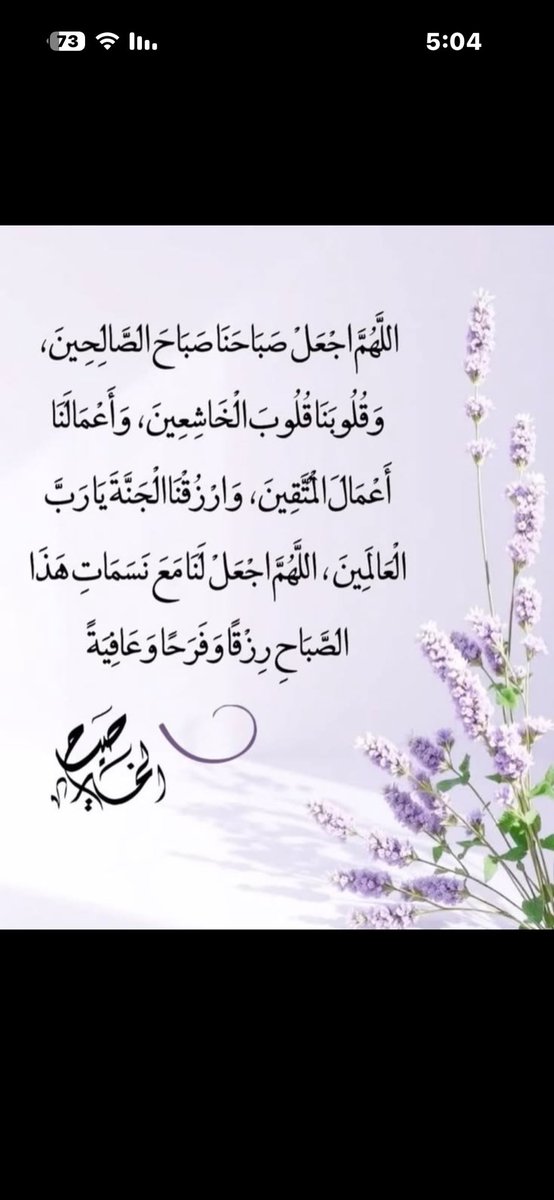 73
5:04
اللَّهُمَّ اجْعَلْ صَبَاحَنَا صَبَاحَ الصَّالِحِينَ،
وَقُلُوبَنَا قُلُوبَ الْخَاشِعِينَ، وَأَعْمَالَنَا
أَعْمَالَ الْمُتَّقِينَ، وَارْزُقْنَا الْجَنَّةَ يَارَبَّ
الْعَالَمِينَ، اللَّهُمَّ اجْعَلْ لَنَا مَعَ نَسَمَاتِ هَذَا
الصَّبَاحِ رِزْقًا وَفَرَحًا وَعَافِيَةً
صباح
الخير